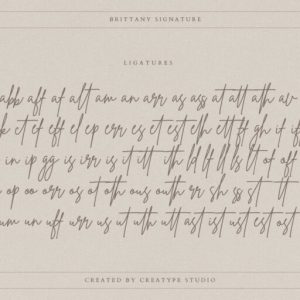 BRITTANY SIGNATURE
LIGATURES
abb aff af alt am an arr as ass at att ath av
k ct ef eff el ep err es et est eth ett ff gh it if
in ip gg is irr is it itt ith ld lt ll ls lt of off
op oo orr os ot oth ous outh rr sh ss st tt
um un uff urr us ut uth utt ast ist ust est ost
CREATED BY CREATYPE STUDIO